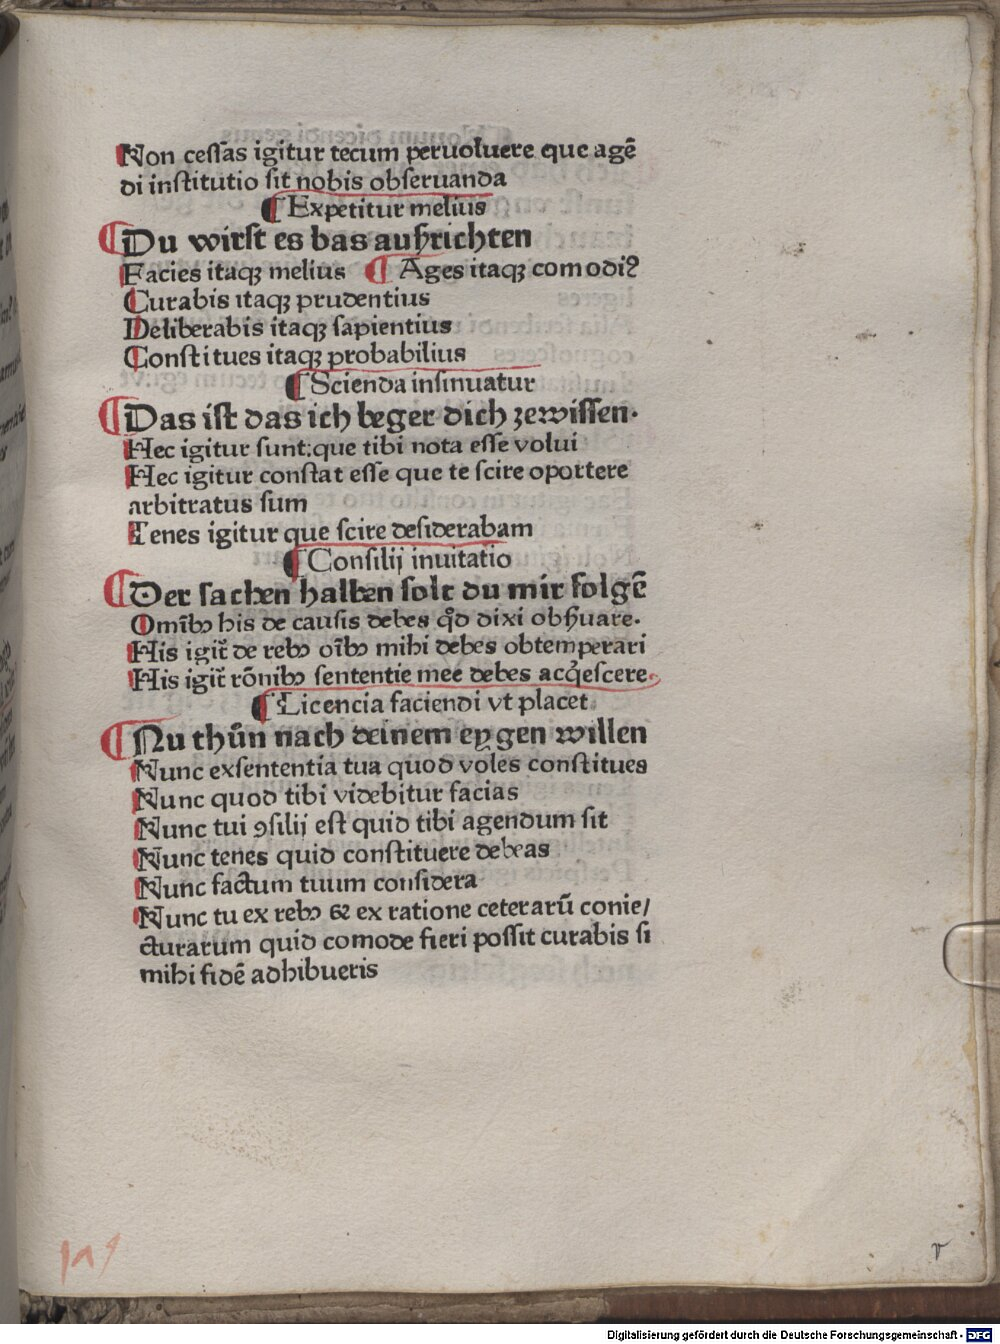 Non cessas igitur tecum peruoluere que agē
di institutio sit nobis obseruanda
¶ Expetitur melius
¶ Du wirst es bas aufrichten
Facies itaqꝫ melius ¶ Ages itaqꝫ comodiꝰ
Curabis itaqꝫ prudentius
Deliberabis itaqꝫ sapientius
Constitues itaqꝫ probabilius
¶ Scienda insinuatur
¶ Das ist das ich beger dich zewissen.
Hec igitur sunt: que tibi nota esse volui
Hec igitur constat esse que te scire oportere
arbitratus sum
Tenes igitur que scire desiderabam
¶ Consilij inuitatio
¶ Der sachen halben solt du mir folgē
Omībꝰ his de causis debes qd̄ dixi obẜuare.
His igit̄ de rebꝰ oībꝰ mihi debes obtemperari
His igit̄ rōnibꝰ sententie mee debes acq̇escere.
¶ Licencia faciendi vt placet.
¶ Nu thůn nach deinem eygen willen
Nunc exsententia tua quod voles constitues
Nunc quod tibi videbitur facias
Nunc tui ꝯsilij est quid tibi agendum sit
Nunc tenes quid constituere debeas
Nunc factum tuum considera
Nunc tu ex rebꝰ & ex ratione ceterarū conie/
cturarum quid comode fieri possit curabis si
mihi fidē adhibueris
v
Digitalisierung gefördert durch die Deutsche Forschungsgemeinschaft - DFG